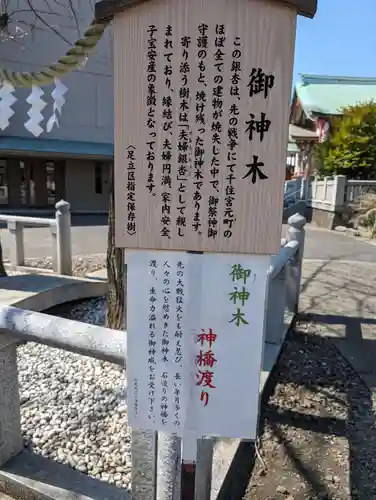 御神木
この銀杏は、先の戦争にて千住宮元町の
ほぼ全ての建物が焼失した中、御祭神御
守護のもと、焼け残った御神木であります。
寄り添う樹木は「夫婦銀杏」として親し
まれており、縁結び、夫婦円満、家内安全、
子宝安産の象徴となっております。
〈足立区指定保存樹〉
御神木
神橋渡り
先の大戦猛火をも耐え忍び、長年多くの
人々の心を慰めきた御神木 石造りの神橋を
渡り、生命力溢れる御神威をお受け下さい。